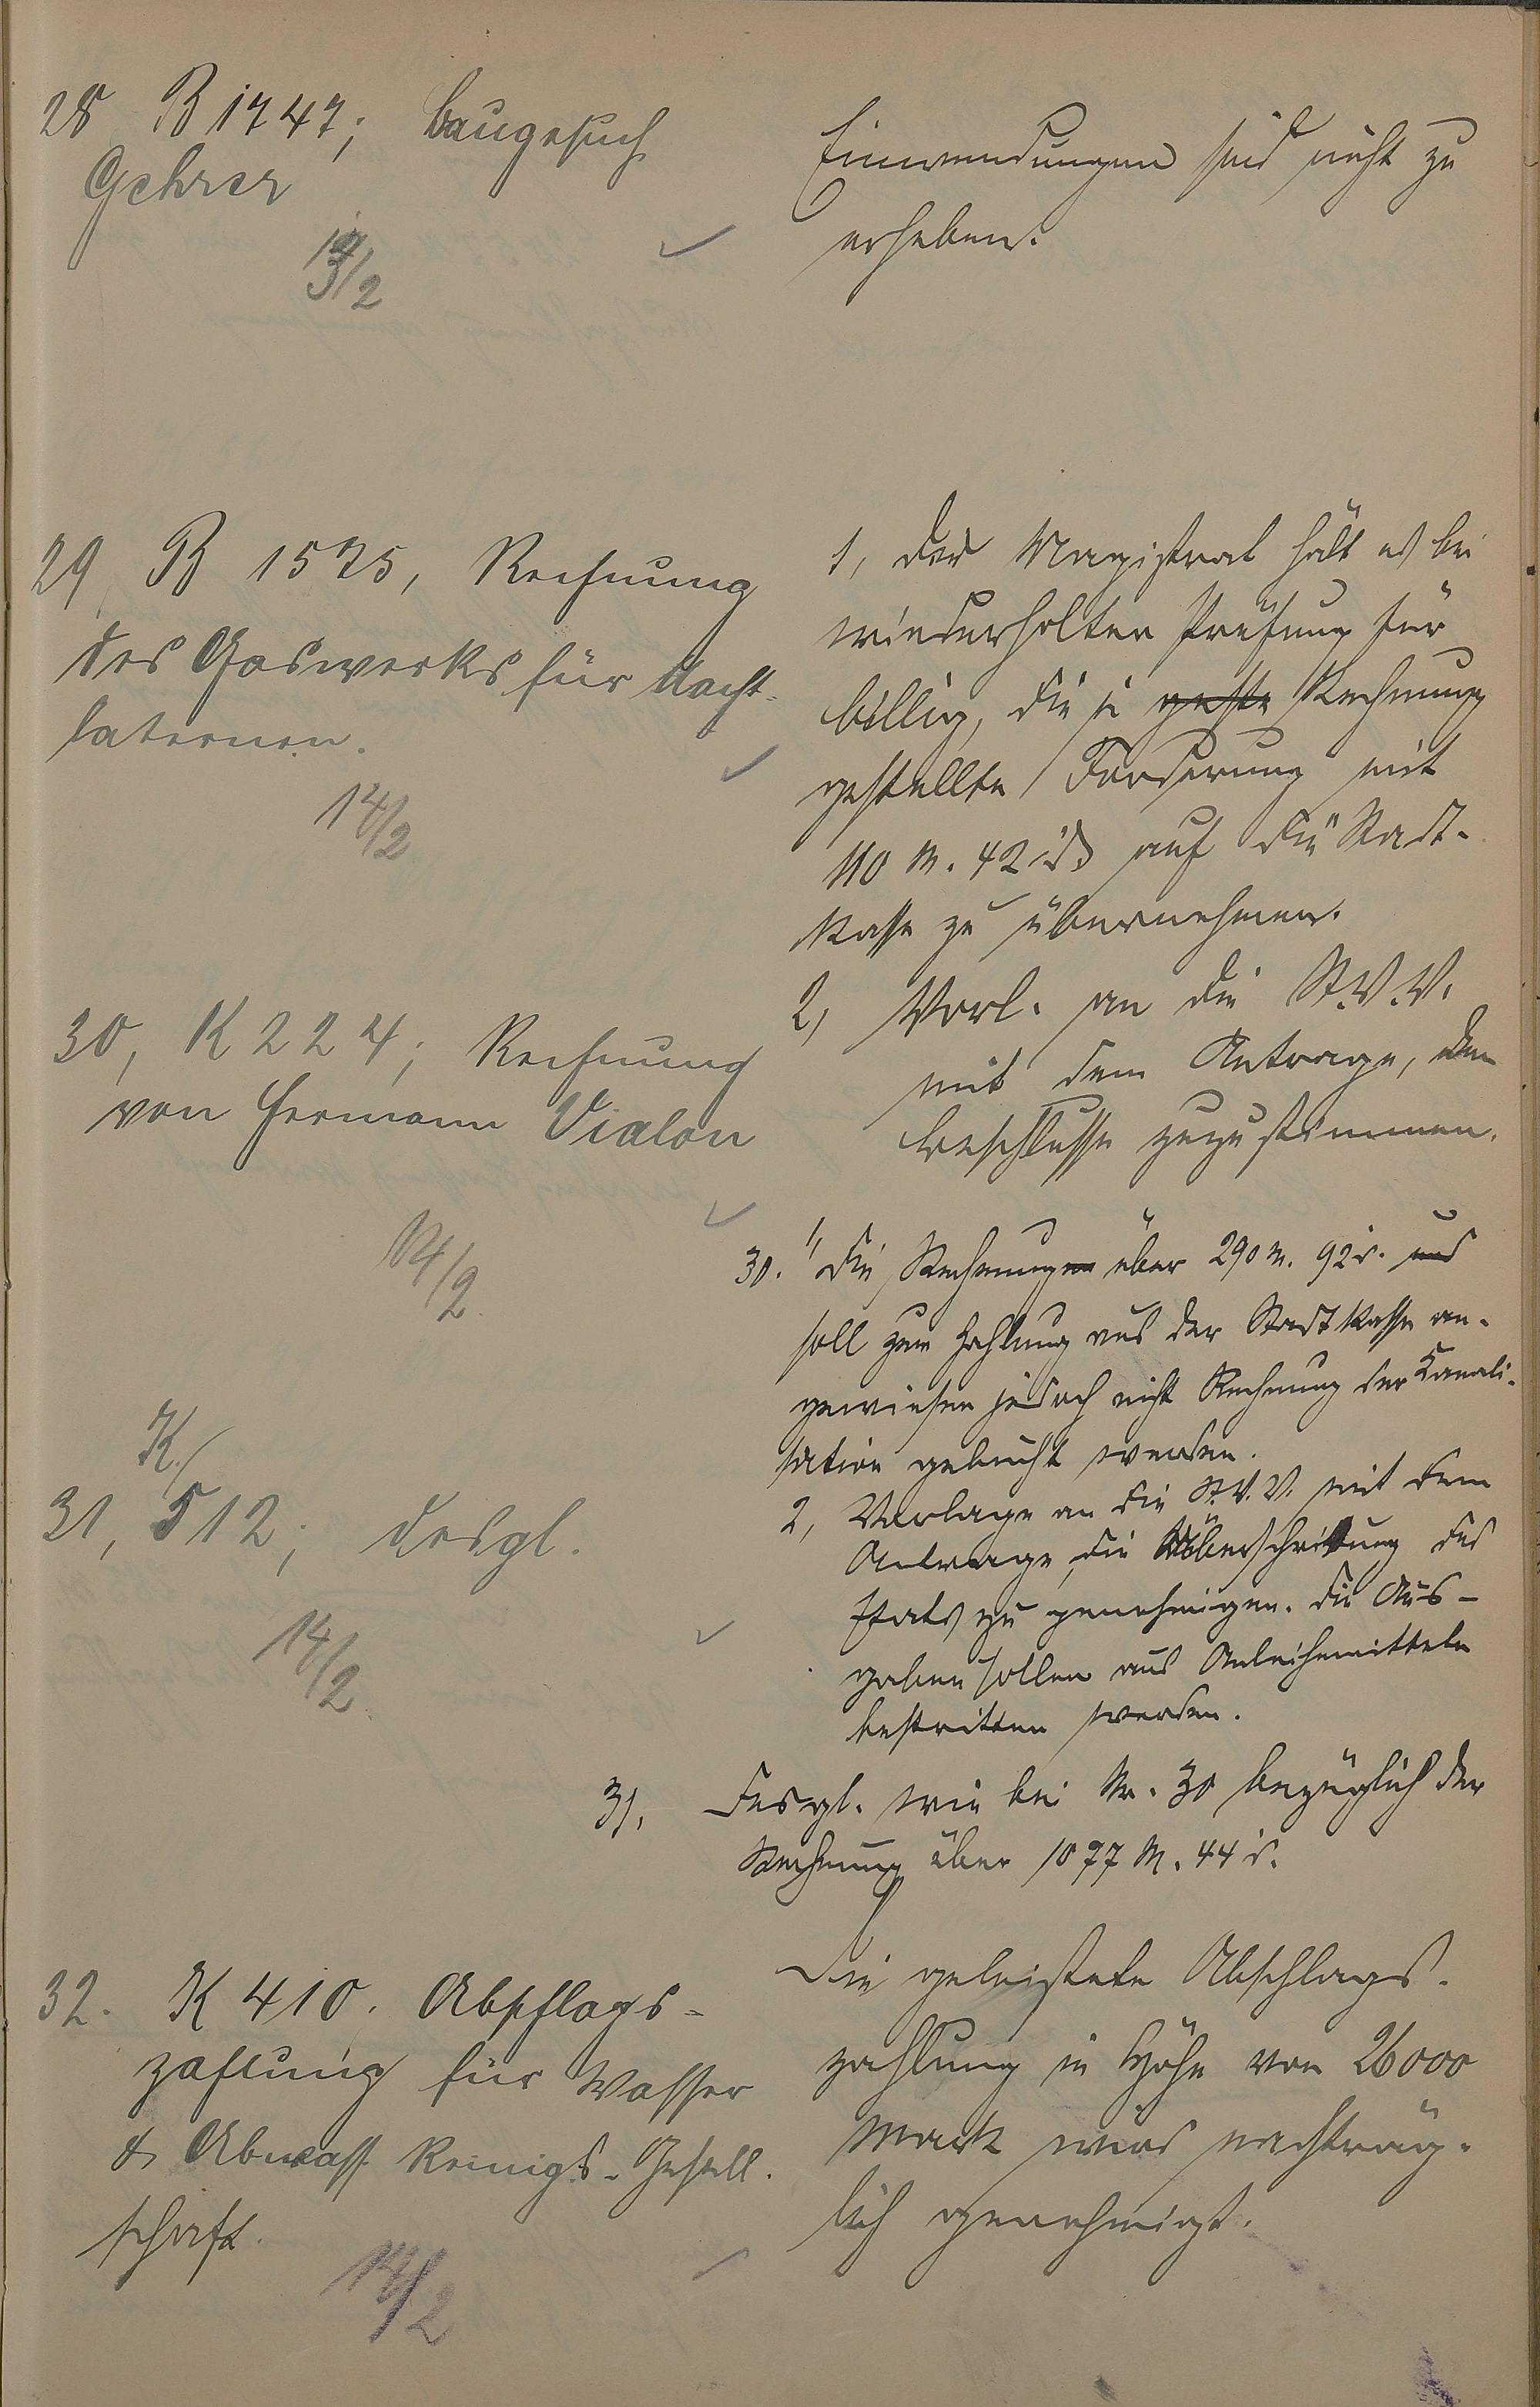 28 B 1747; Baugesuch
Gehrer
13/2
Einwendungen sind nicht zu
erheben.
29, B 1575, Rechnung
des Gaswerks für Nacht-
laternen.
14/2
1, Der Magistrat hält es bei
wiederholter Prüfung für
billig, die in geste Rechnung
gestellte Forderung mit
110 M. 42 d auf die Stadt-
kasse zu übernehmen.
2, Vorl. an die St.V.V.
mit dem Antrage, dem
Beschlusse zuzustimmen.
30, K 224; Rechnung
von Hermann Vialon
14/2
30. 1, Die Rechnungen über 290 M. 92 d. und
soll zur Zahlung aus der Stadtkasse an-
gewiesen jedoch nicht Rechnung der Kanali-
sation gebucht werden.
2, Vorlage an die St.V.V. mit dem
Antrage, die Überschreitung des
Etats zu genehmigen. Die Aus-
gaben sollen aus Anleihemitteln
bestritten werden.
K/
31, 512; desgl.
14/2
31. Desgl. wie bei Nr. 30 bezüglich der
Rechnung über 1077 M. 44 d.
32. K 410. Abschlags-
zahlung für Wasser
& Abwass. Reinigs.-Gesell-
schaft.
14/2
Die geleistete Abschlags-
zahlung in Höhe von 26000
Mark wird nachträg-
lich genehmigt.